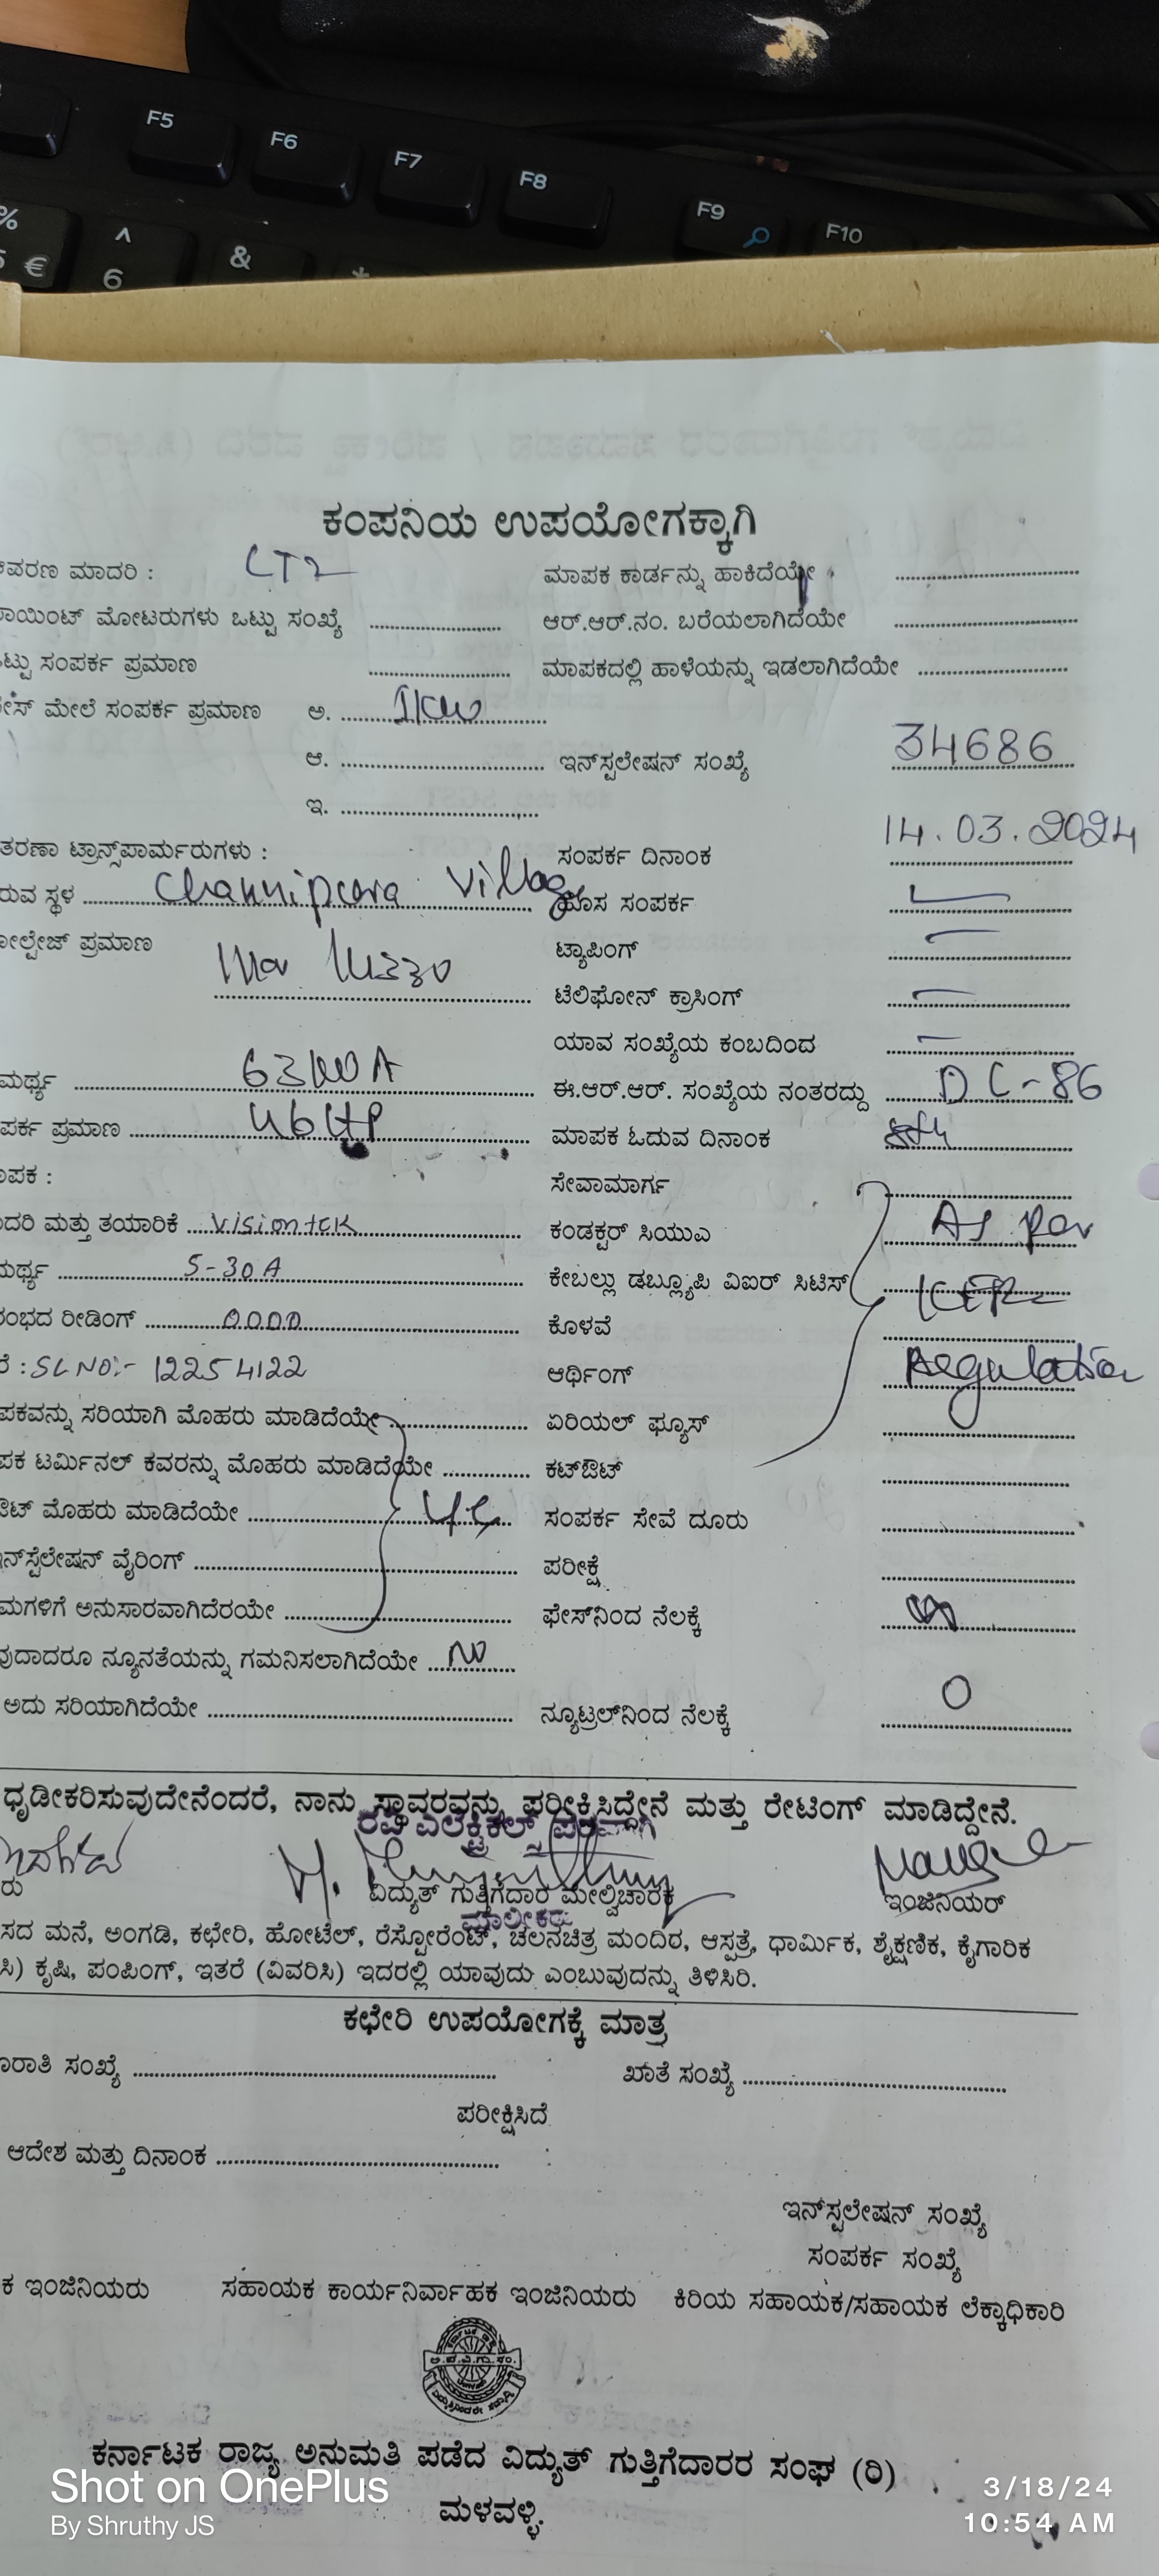 F5 F6 F7 F8 F9 F10
% € ^ 6 &
ಕಂಪನಿಯ ಉಪಯೋಗಕ್ಕಾಗಿ
ಮಾದರಿ : LT2 ಮಾಪಕ ಕಾರ್ಡನ್ನು ಹಾಕಿದೆಯೇ
ಮೋಟರುಗಳು ಒಟ್ಟು ಸಂಖ್ಯೆ ಆರ್.ಆರ್.ನಂ. ಬರೆಯಲಾಗಿದೆಯೇ
ಸಂಪರ್ಕ ಪ್ರಮಾಣ ಮಾಪಕದಲ್ಲಿ ಹಾಳೆಯನ್ನು ಇಡಲಾಗಿದೆಯೇ
ಮೇಲೆ ಸಂಪರ್ಕ ಪ್ರಮಾಣ ಅ. 1kw
ಆ. ಇನ್‌ಸ್ಪಲೇಷನ್ ಸಂಖ್ಯೆ 34686
ಇ.
ಟ್ರಾನ್ಸ್‌ಪಾರ್ಮರುಗಳು : ಸಂಪರ್ಕ ದಿನಾಂಕ 14.03.2024
ಸ್ಥಳ Channipura Village ಹೊಸ ಸಂಪರ್ಕ
ಪ್ರಮಾಣ ಟ್ಯಾಪಿಂಗ್
ಟೆಲಿಫೋನ್ ಕ್ರಾಸಿಂಗ್
ಯಾವ ಸಂಖ್ಯೆಯ ಕಂಬದಿಂದ
63 ಈ.ಆರ್.ಆರ್. ಸಂಖ್ಯೆಯ ನಂತರದ್ದು DC-86
ಪ್ರಮಾಣ 46HP ಮಾಪಕ ಓದುವ ದಿನಾಂಕ
ಸೇವಾಮಾರ್ಗ
ಮತ್ತು ತಯಾರಿಕೆ Visiontek ಕಂಡಕ್ಟರ್ ಸಿಯುಎ As per
5-30A ಕೇಬಲ್ಲು ಡಬ್ಲ್ಯೂಪಿ ವಿಐರ್ ಸಿಟಿಸ್
ರೀಡಿಂಗ್ 0000 ಕೊಳವೆ
SL NO:- 12254122 ಆರ್ಥಿಂಗ್ Regulation
ಸರಿಯಾಗಿ ಮೊಹರು ಮಾಡಿದೆಯೇ ಏರಿಯಲ್ ಫ್ಯೂಸ್
ಟರ್ಮಿನಲ್ ಕವರನ್ನು ಮೊಹರು ಮಾಡಿದೆಯೇ ಕಟ್‌ಔಟ್
ಮೊಹರು ಮಾಡಿದೆಯೇ ಸಂಪರ್ಕ ಸೇವೆ ದೂರು
ವೈರಿಂಗ್ ಪರೀಕ್ಷೆ
ಅನುಸಾರವಾಗಿದೆರಯೇ ಫೇಸ್‌ನಿಂದ ನೆಲಕ್ಕೆ
ನ್ಯೂನತೆಯನ್ನು ಗಮನಿಸಲಾಗಿದೆಯೇ No
ಅದು ಸರಿಯಾಗಿದೆಯೇ ನ್ಯೂಟ್ರಲ್‌ನಿಂದ ನೆಲಕ್ಕೆ 0
ಧೃಡೀಕರಿಸುವುದೇನೆಂದರೆ, ನಾನು ಸ್ಥಾವರವನ್ನು ಪರೀಕ್ಷಿಸಿದ್ದೇನೆ ಮತ್ತು ರೇಟಿಂಗ್ ಮಾಡಿದ್ದೇನೆ.
ವಿದ್ಯುತ್ ಗುತ್ತಿಗೆದಾರ ಮೇಲ್ವಿಚಾರಕ ಇಂಜಿನಿಯರ್
ಮಾಲೀಕರು
ಮನೆ, ಅಂಗಡಿ, ಕಛೇರಿ, ಹೋಟೆಲ್, ರೆಸ್ಟೋರೆಂಟ್, ಚಲನಚಿತ್ರ ಮಂದಿರ, ಆಸ್ಪತ್ರೆ, ಧಾರ್ಮಿಕ, ಶೈಕ್ಷಣಿಕ, ಕೈಗಾರಿಕ
ಕೃಷಿ, ಪಂಪಿಂಗ್, ಇತರೆ (ವಿವರಿಸಿ) ಇದರಲ್ಲಿ ಯಾವುದು ಎಂಬುವುದನ್ನು ತಿಳಿಸಿರಿ.
ಕಛೇರಿ ಉಪಯೋಗಕ್ಕೆ ಮಾತ್ರ
ಸಂಖ್ಯೆ ಖಾತೆ ಸಂಖ್ಯೆ
ಪರೀಕ್ಷಿಸಿದೆ
ಆದೇಶ ಮತ್ತು ದಿನಾಂಕ
ಇನ್‌ಸ್ಪಲೇಷನ್ ಸಂಖ್ಯೆ
ಸಂಪರ್ಕ ಸಂಖ್ಯೆ
ಇಂಜಿನಿಯರು ಸಹಾಯಕ ಕಾರ್ಯನಿರ್ವಾಹಕ ಇಂಜಿನಿಯರು ಕಿರಿಯ ಸಹಾಯಕ/ಸಹಾಯಕ ಲೆಕ್ಕಾಧಿಕಾರಿ
ಕರ್ನಾಟಕ ರಾಜ್ಯ ಅನುಮತಿ ಪಡೆದ ವಿದ್ಯುತ್ ಗುತ್ತಿಗೆದಾರರ ಸಂಘ (ರಿ)
ಮಳವಳ್ಳಿ.
Shot on OnePlus
By Shruthy JS
3/18/24
10:54 AM